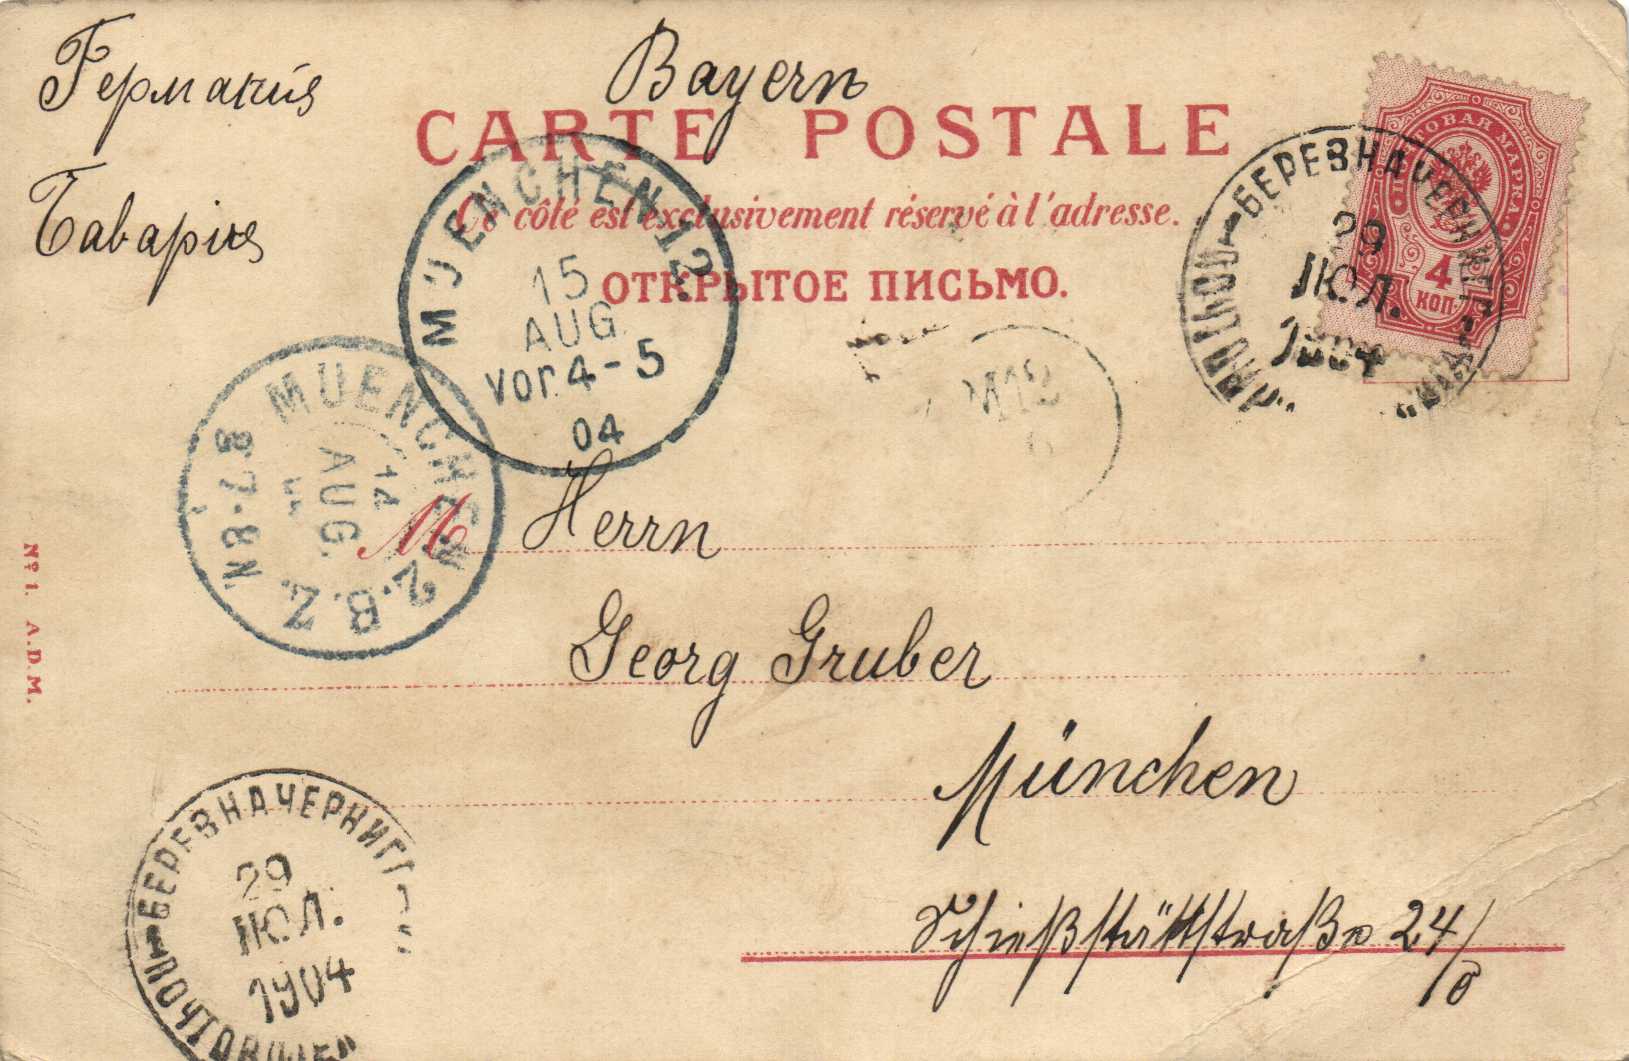 Германія
Bayern
CARTE POSTALE
Баварія
Ce côté est exclusivement réservé à l'adresse.
ОТКРЫТОЕ ПИСЬМО.
ПОЧТОВАЯ МАРКА.
4
КОП.
БЕРЕЗНА ЧЕРНИГ.
29
ІЮЛ.
1904
MUENCHEN 12.
15
AUG
Vor. 4-5
04
MUENCHEN 2. B.Z.
14
AUG.
N 7-8 N
M
Herrn
Georg Gruber
München
Schießstättstraße 24/0
№ 1. A.D.M.
БЕРЕЗНА ЧЕРНИГ
29
ІЮЛ.
1904